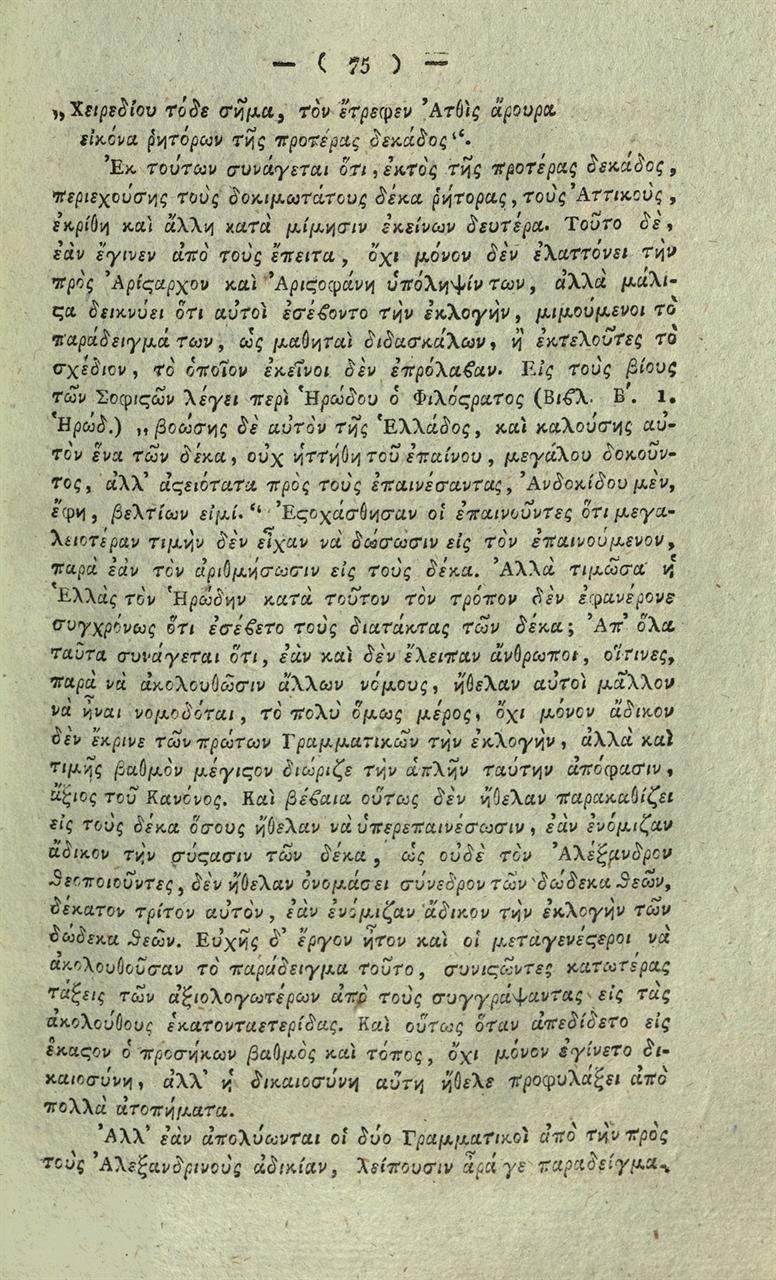 — ( 75 ) —
„Χειρεδίου τόδε σῆμα, τὸν ἔτρεφεν Ἀτθὶς ἄρουρα
εἰκόνα ῥητόρων τῆς προτέρας δεκάδος“.
Ἐκ τούτων συνάγεται ὅτι, ἐκτὸς τῆς προτέρας δεκάδος,
περιεχούσης τοὺς δοκιμωτάτους δέκα ῥήτορας, τοὺς Ἀττικοὺς,
ἐκρίθη καὶ ἄλλη κατὰ μίμησιν ἐκείνων δευτέρα. Τοῦτο δὲ,
ἐὰν ἔγινεν ἀπὸ τοὺς ἔπειτα, ὄχι μόνον δὲν ἐλαττόνει τὴν
πρὸς Ἀρίςαρχον καὶ Ἀριςοφάνη ὑπόληψίν των, ἀλλὰ μάλι-
ςα δεικνύει ὅτι αὐτοὶ ἐσέβοντο τὴν ἐκλογὴν, μιμούμενοι τὸ
παράδειγμά των, ὡς μαθηταὶ διδασκάλων, ἢ ἐκτελοῦτες τὸ
σχέδιον, τὸ ὁποῖον ἐκεῖνοι δὲν ἐπρόλαβαν. Εἰς τοὺς βίους
τῶν Σοφιςῶν λέγει περὶ Ἡρώδου ὁ Φιλόςρατος (Βιβλ. Β΄. 1.
Ἡρώδ.) „βοώσης δὲ αὐτὸν τῆς Ἑλλάδος, καὶ καλούσης αὐ-
τὸν ἕνα τῶν δέκα, οὐχ ἡττήθη τοῦ ἐπαίνου, μεγάλου δοκοῦν-
τος, ἀλλ' ἀςειότατα πρὸς τοὺς ἐπαινέσαντας, Ἀνδοκίδου μὲν,
ἔφη, βελτίων εἰμί.“ Ἐςοχάσθησαν οἱ ἐπαινοῦντες ὅτι μεγα-
λειοτέραν τιμὴν δὲν εἶχαν νὰ δώσωσιν εἰς τὸν ἐπαινούμενον,
παρὰ ἐὰν τὸν ἀριθμήσωσιν εἰς τοὺς δέκα. Ἀλλὰ τιμῶσα ἡ
Ἑλλὰς τὸν Ἡρώδην κατὰ τοῦτον τὸν τρόπον δὲν ἐφανέρονε
συγχρόνως ὅτι ἐσέβετο τοὺς διατάκτας τῶν δέκα; Ἀπ' ὅλα
ταῦτα συνάγεται ὅτι, ἐὰν καὶ δὲν ἔλειπαν ἄνθρωποι, οἵτινες,
παρὰ νὰ ἀκολουθῶσιν ἄλλων νόμους, ἤθελαν αὐτοὶ μᾶλλον
νὰ ἦναι νομοδόται, τὸ πολὺ ὅμως μέρος, ὄχι μόνον ἄδικον
δὲν ἔκρινε τῶν πρώτων Γραμματικῶν τὴν ἐκλογὴν, ἀλλὰ καὶ
τιμῆς βαθμὸν μέγιςον διώριζε τὴν ἁπλῆν ταύτην ἀπόφασιν,
ἄξιος τοῦ Κανόνος. Καὶ βέβαια οὕτως δὲν ἤθελαν παρακαθίζει
εἰς τοὺς δέκα ὅσους ἤθελαν νὰ ὑπερεπαινέσωσιν, ἐὰν ἐνόμιζαν
ἄδικον τὴν σύςασιν τῶν δέκα, ὡς οὐδὲ τὸν Ἀλέξανδρον
θεοποιοῦντες, δὲν ἤθελαν ὀνομάσει σύνεδρον τῶν δώδεκα θεῶν,
δέκατον τρίτον αὐτὸν, ἐὰν ἐνόμιζαν ἄδικον τὴν ἐκλογὴν τῶν
δώδεκα θεῶν. Εὐχῆς δ' ἔργον ἦτον καὶ οἱ μεταγενέςεροι νὰ
ἀκολουθοῦσαν τὸ παράδειγμα τοῦτο, συνιςῶντες κατωτέρας
τάξεις τῶν ἀξιολογωτέρων ἀπὸ τοὺς συγγράψαντας εἰς τὰς
ἀκολούθους ἑκατονταετερίδας. Καὶ οὕτως ὅταν ἀπεδίδετο εἰς
ἕκαςον ὁ προσήκων βαθμὸς καὶ τόπος, ὄχι μόνον ἐγίνετο δι-
καιοσύνη, ἀλλ' ἡ δικαιοσύνη αὕτη ἤθελε προφυλάξει ἀπὸ
πολλὰ ἀτοπήματα.
Ἀλλ' ἐὰν ἀπολύωνται οἱ δύο Γραμματικοὶ ἀπὸ τὴν πρὸς
τοὺς Ἀλεξανδρινοὺς ἀδικίαν, λείπουσιν ἆρά γε παραδείγμα-